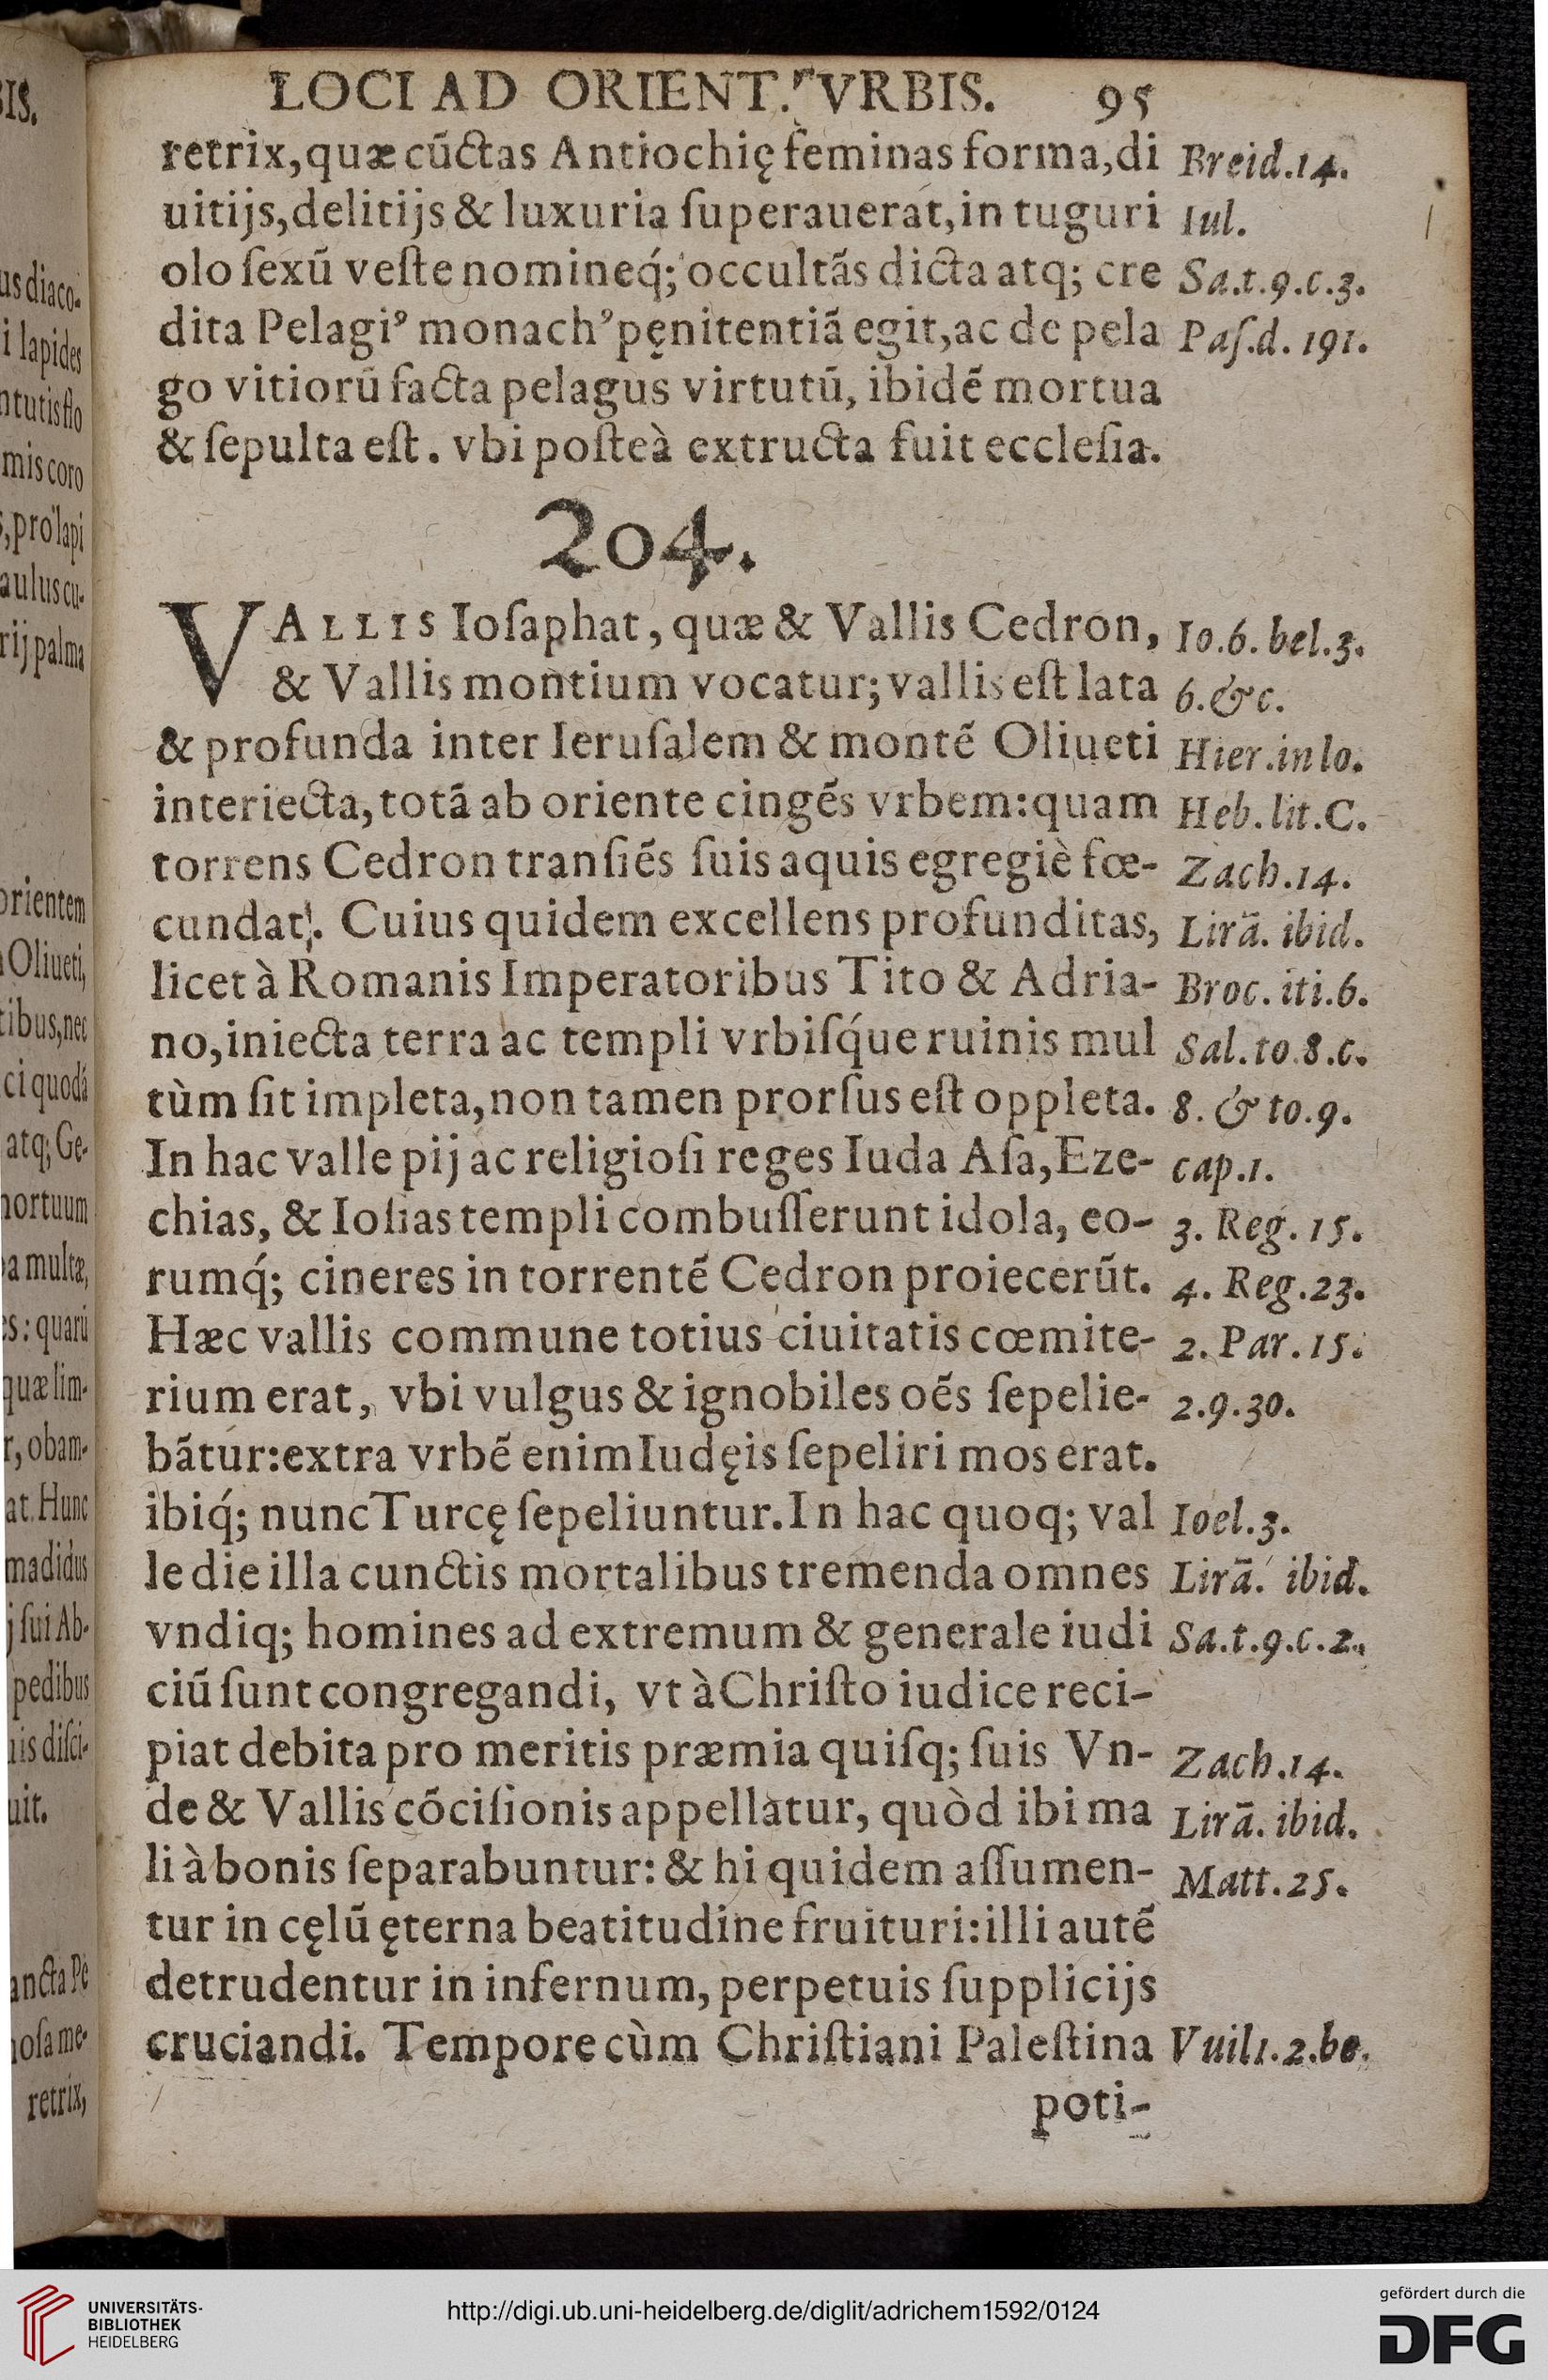 LOCI AD ORIENT. VRBIS. 95
retrix, quæ cūctas Antiochię feminas forma, di
uitijs, delitijs & luxuria ſuperauerat, in tuguri
olo ſexū veſte nomineq́; occultās dicta atq; cre
dita Pelagi᾽ monach᾽ pęnitentiā egit, ac de pela
go vitiorū facta pelagus virtutū, ibidē mortua
& ſepulta eſt. vbi poſteà extructa fuit eccleſia.
Breid.14.
Iul.
Sa.t.9.c.3.
Paſ.d.191.
204.
VALLIS Ioſaphat, quæ & Vallis Cedron,
& Vallis montium vocatur; vallis eſt lata
& profunda inter Ieruſalem & montē Oliueti
interiecta, totā ab oriente cingēs vrbem: quam
torrens Cedron tranſiēs ſuis aquis egregiè fœ-
cundat. Cuius quidem excellens profunditas,
licet à Romanis Imperatoribus Tito & Adria-
no, iniecta terra ac templi vrbiſq́ue ruinis mul
tùm ſit impleta, non tamen prorſus eſt oppleta.
In hac valle pij ac religioſi reges Iuda Aſa, Eze-
chias, & Ioſias templi combuſſerunt idola, eo-
rumq́; cineres in torrentē Cedron proiecerūt.
Hæc vallis commune totius ciuitatis cœmite-
rium erat, vbi vulgus & ignobiles oēs ſepelie-
bātur: extra vrbē enim Iudęis ſepeliri mos erat.
ibiq́; nunc Turcę ſepeliuntur. In hac quoq; val
le die illa cunctis mortalibus tremenda omnes
vndiq; homines ad extremum & generale iudi
ciū ſunt congregandi, vt à Chriſto iudice reci-
piat debita pro meritis præmia quiſq; ſuis Vn-
de & Vallis cōciſionis appellatur, quòd ibi ma
li à bonis ſeparabuntur: & hi quidem aſſumen-
tur in cęlū ęterna beatitudine fruituri: illi autē
detrudentur in infernum, perpetuis ſupplicijs
cruciandi. Tempore cùm Chriſtiani Paleſtina
poti-
Io.6.bel.3.
6.&c.
Hier.in lo.
Heb.lit.C.
Zach.14.
Lirā. ibid.
Broc.iti.6.
Sal.to.8.c.
8. & to.9.
cap.1.
3. Reg.15.
4. Reg.23.
2. Par.15.
2.9.30.
Ioel.3.
Lirā. ibid.
Sa.t.9.c.2.
Zach.14.
Lirā. ibid.
Matt.25.
Vuil1.2.be.
IS.
us diaco-
i lapides
ntutis flo
mis coro
, pro lapi
aulus cu-
rij palma
orientem
Oliueti,
tibus, nec
ci quodā
atq; Ge-
mortuum
a multæ,
s: quarū
quæ lim-
r, obam-
at. Hunc
madidus
j ſui Ab-
pedibus
is diſci-
uit.
ancta Pe
oſa me-
retrix,
UNIVERSITÄTS-
BIBLIOTHEK
HEIDELBERG
http://digi.ub.uni-heidelberg.de/diglit/adrichem1592/0124
gefördert durch die
DFG